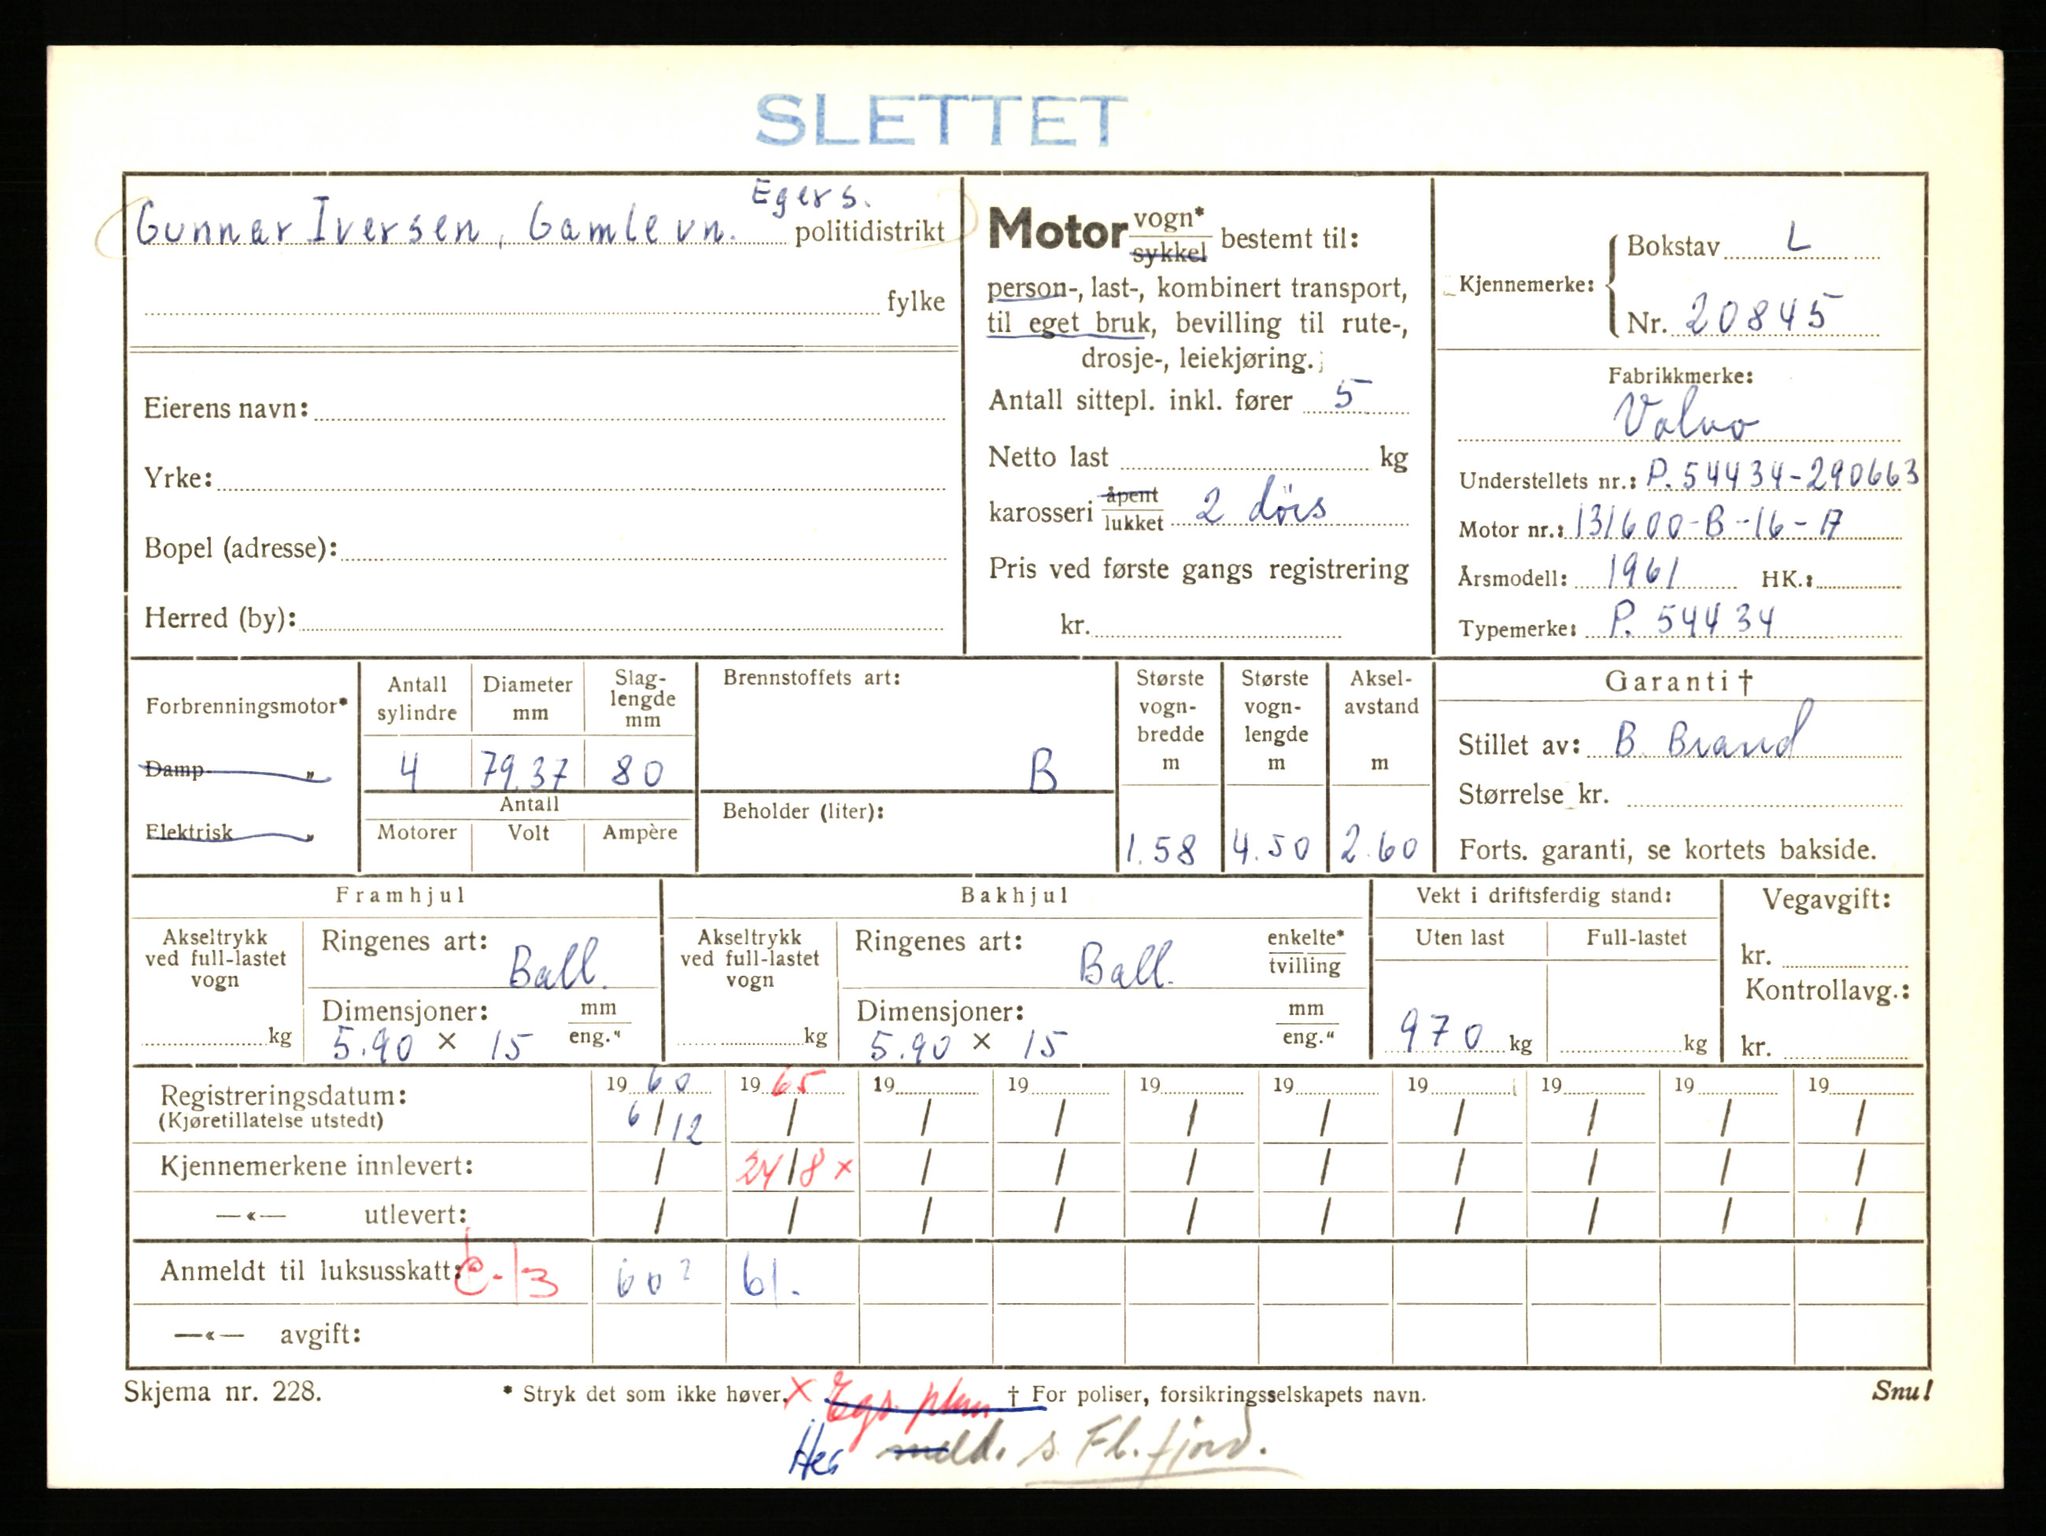 SLETTET
Egers.
Gunnar Iversen, Gamlevn. politidistrikt
fylke
Eierens navn:
Yrke:
Bopel (adresse):
Herred (by):
Motor vogn* sykkel bestemt til:
person-, last-, kombinert transport,
til eget bruk, bevilling til rute-,
drosje-, leiekjøring.
Antall sittepl. inkl. fører 5
Netto last kg
karosseri åpent lukket 2 dørs
Pris ved første gangs registrering
kr.
Kjennemerke: Bokstav L
Nr. 20845
Fabrikkmerke:
Volvo
Understellets nr.: P. 54434-290663
Motor nr.: 131600-B-16-A
Årsmodell: 1961 HK.:
Typemerke: P. 54434
Forbrenningsmotor*
Damp "
Elektrisk "
Antall sylindre
Diameter mm
Slag-lengde mm
4 79.37 80
Antall
Motorer Volt Ampère
Brennstoffets art:
B
Beholder (liter):
Største vogn-bredde m
1.58
Største vogn-lengde m
4.50
Aksel-avstand m
2.60
Garanti †
Stillet av: B. Brand
Størrelse kr.
Forts. garanti, se kortets bakside.
Framhjul
Akseltrykk ved full-lastet vogn
kg
Ringenes art: Ball.
Dimensjoner: mm
5.90 × 15 eng."
Bakhjul
Akseltrykk ved full-lastet vogn
kg
Ringenes art: Ball. enkelte* tvilling
Dimensjoner: mm
5.90 × 15 eng."
Vekt i driftsferdig stand:
Uten last Full-lastet
970 kg kg
Vegavgift:
kr.
Kontrollavg.:
kr.
Registreringsdatum: 19 60 19 65 19 19 19 19 19 19 19 19
(Kjøretillatelse utstedt) 6/12 / / / / / / / / /
Kjennemerkene innlevert: / 24/8 × / / / / / / / /
—«— utlevert: / / / / / / / / / /
Anmeldt til luksusskatt: 60? 61.
—«— avgift:
Skjema nr. 228. * Stryk det som ikke høver. × Egs. † For poliser, forsikringsselskapets navn. Snu!
meld. s. Fl.fjord.